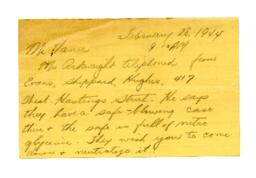 February 28, 1944
9 AM
Mr. Vance
Mr. Arkwright telephoned from
Evans, Sheppard, Hughes, 417
West Hastings Street. He says
they have a safe-blowing case
there & the safe is full of nitro
glycerine. They wish you to come
down & neutralize it.